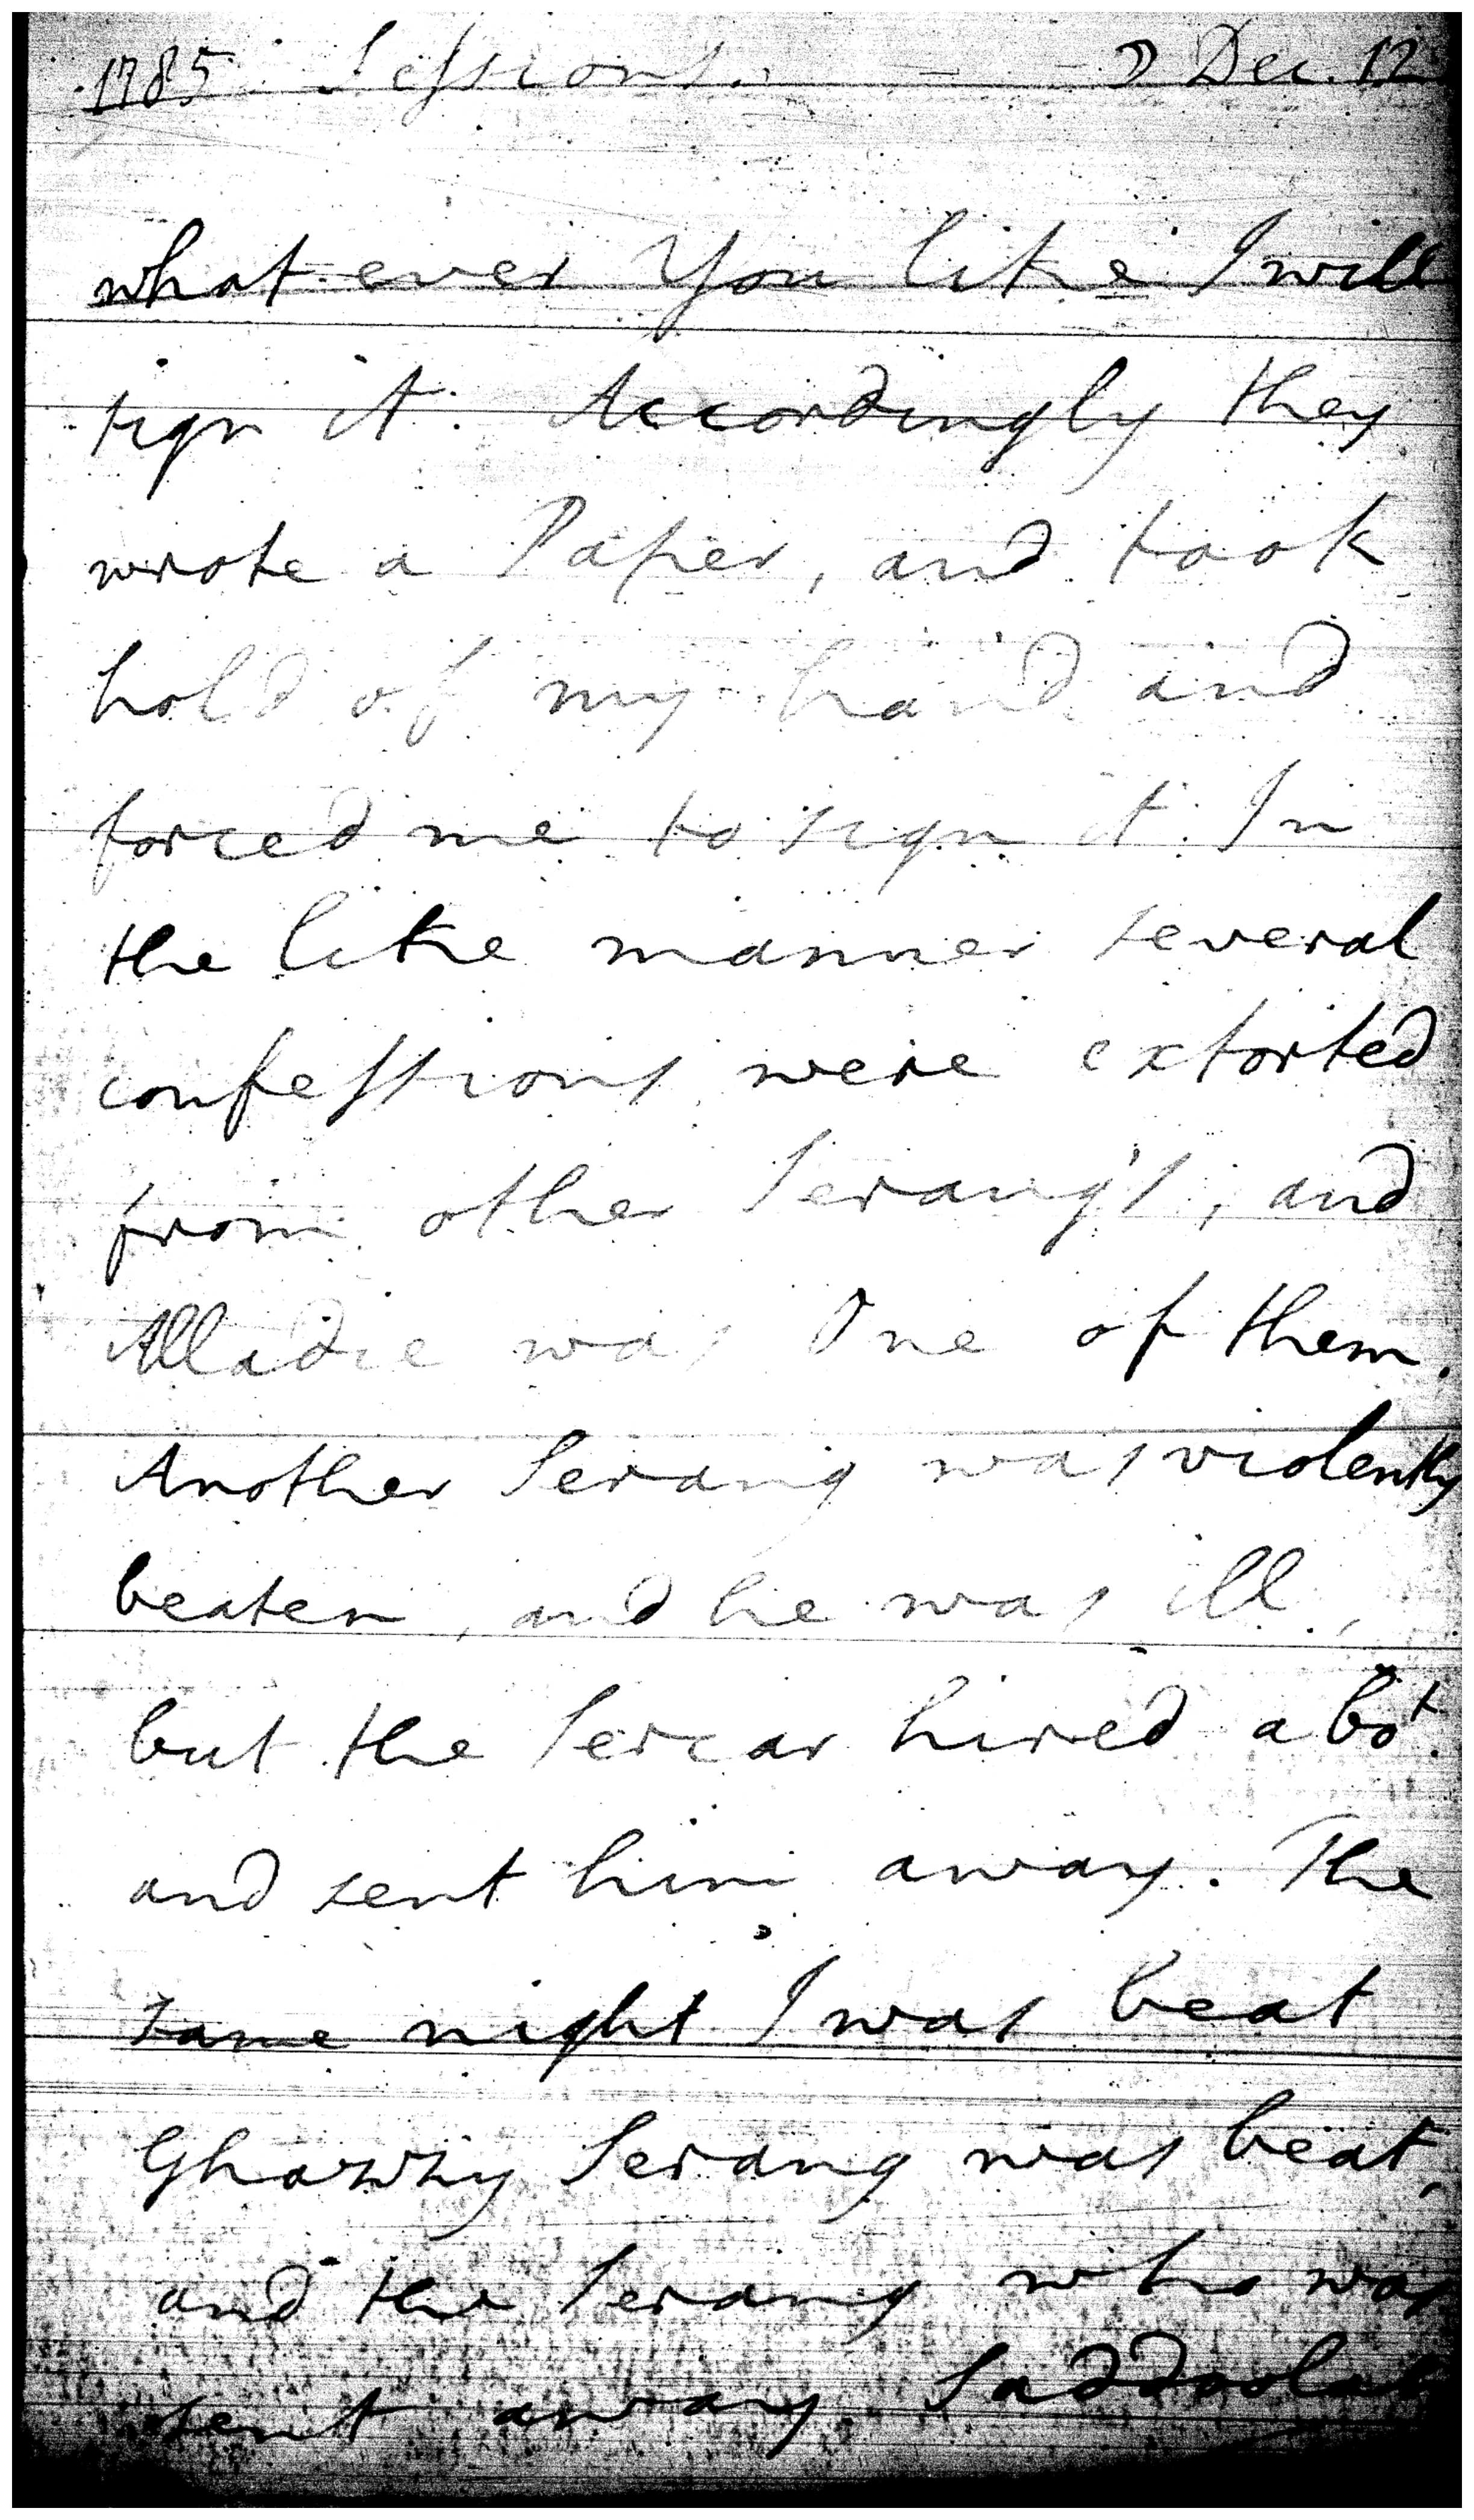 1785 Sessions. — — ☽ Dec. 12
what ever You like I will
sign it. Accordingly they
wrote a Paper, and took
hold of my hand and
forced me to sign it. In
the like manner several
confessions were extorted
from other Serang's, and
Alladie was One of them.
Another Serang was violently
beaten, and he was ill,
but the Sercar hired a bot.
and sent him away. The
same night I was beat
Ghawzy Serang was beat,
and the Serang who was
sent away. Saddoolah